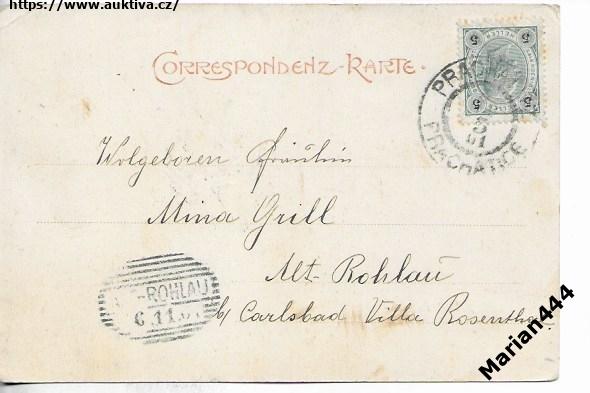 https://www.auktiva.cz/
CORRESPONDENZ-KARTE.
5 5
5 5
PRACHATICE
5
01
Wolgeboren Fräulein
Mina Grill
Alt-Rohlau
b/ Carlsbad Villa Rosenthal
-ROHLAU
6.11.01
Marian444